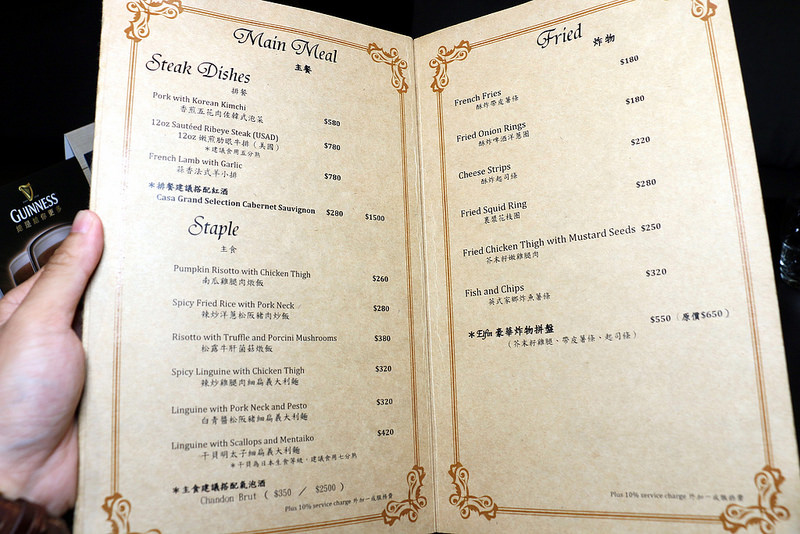 GUINNESS
Main Meal
主餐
Steak Dishes
排餐
Pork with Korean Kimchi $580
香煎五花肉佐韓式泡菜
12oz Sautéed Ribeye Steak (USAD) $780
12oz 嫩煎肋眼牛排（美國）
＊建議食用五分熟
French Lamb with Garlic $780
蒜香法式羊小排
＊排餐建議搭配紅酒
Casa Grand Selection Cabernet Sauvignon $280 $1500
Staple
主食
Pumpkin Risotto with Chicken Thigh $260
南瓜雞腿肉燉飯
Spicy Fried Rice with Pork Neck $280
辣炒洋蔥松阪豬肉炒飯
Risotto with Truffle and Porcini Mushrooms $380
松露牛肝菌菇燉飯
Spicy Linguine with Chicken Thigh $320
辣炒雞腿肉細扁義大利麵
Linguine with Pork Neck and Pesto $320
白青醬松阪豬細扁義大利麵
Linguine with Scallops and Mentaiko $420
干貝明太子細扁義大利麵
＊干貝為日本生食等級，建議食用七分熟
＊主食建議搭配氣泡酒
Chandon Brut ( $350 / $2500 )
Plus 10% service charge 外加一成服務費
Fried 炸物
French Fries $180
酥炸帶皮薯條
Fried Onion Rings $180
酥炸啤酒洋蔥圈
Cheese Strips $220
酥炸起司條
Fried Squid Ring $280
裹漿花枝圈
Fried Chicken Thigh with Mustard Seeds $250
芥末籽嫩雞腿肉
Fish and Chips $320
英式家鄉炸魚薯條
＊Elfin 豪華炸物拼盤 $550（原價$650）
（芥末籽雞腿、帶皮薯條、起司條）
Plus 10% service charge 外加一成服務費